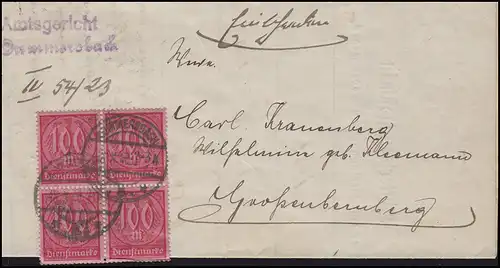 Amtsgericht
Gummersbach
IV 54/23
Einschreiben
Carl Kranenberg
Wilhelmine geb. Kleemann
Großenbernberg
100
m
Dienstmarke
100
m
Dienstmarke
100
m
Dienstmarke
100
m
Dienstmarke